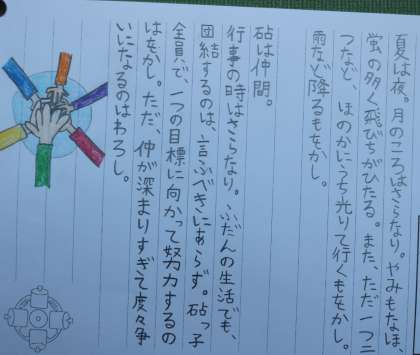 夏は夜。月のころはさらなり。やみもなほ、
蛍の多く飛びちがひたる。また、ただ一つ二
つなど、ほのかにうち光りて行くもをかし。
雨など降るもをかし。
砧は仲間。
行事の時はさらなり。ふだんの生活でも、
団結するのは、言ふべきにあらず。砧っ子
全員で、一つの目標に向かって努力するの
はをかし。ただ、仲が深まりすぎて度々争
いになるのはわろし。